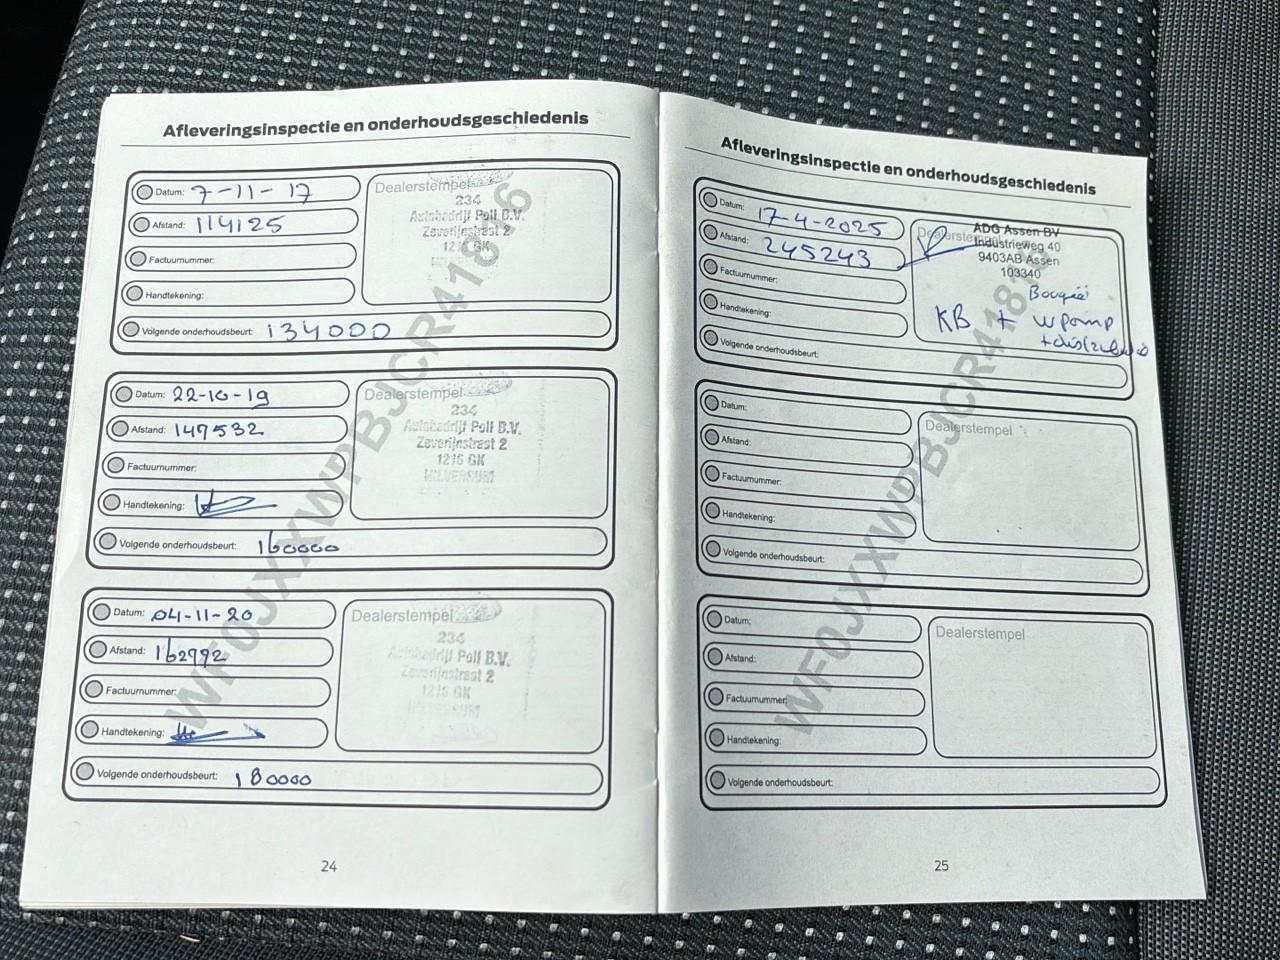 Afleveringsinspectie en onderhoudsgeschiedenis
Datum: 7-11-17
Afstand: 114125
Factuurnummer:
Handtekening:
Volgende onderhoudsbeurt: 134000
Dealerstempel
234
Autobedrijf Poll B.V.
Zeverijnstraat 2
1216 GK
Datum: 22-10-19
Afstand: 147532
Factuurnummer:
Handtekening:
Volgende onderhoudsbeurt: 160000
Dealerstempel
234
Autobedrijf Poll B.V.
Zeverijnstraat 2
1216 GK
HILVERSUM
Datum: 04-11-20
Afstand: 162992
Factuurnummer:
Handtekening:
Volgende onderhoudsbeurt: 180000
Dealerstempel
234
Autobedrijf Poll B.V.
Zeverijnstraat 2
1216 GK
HILVERSUM
24
Afleveringsinspectie en onderhoudsgeschiedenis
Datum: 17-4-2025
Afstand: 245243
Factuurnummer:
Handtekening:
Volgende onderhoudsbeurt:
Dealerstempel
ADG Assen BV
Industrieweg 40
9403AB Assen
103340
Bougie
KB + wpomp
Datum:
Afstand:
Factuurnummer:
Handtekening:
Volgende onderhoudsbeurt:
Dealerstempel
Datum:
Afstand:
Factuurnummer:
Handtekening:
Volgende onderhoudsbeurt:
Dealerstempel
25
WF0JXXWPBJCR41816
WF0JXXWPBJCR418